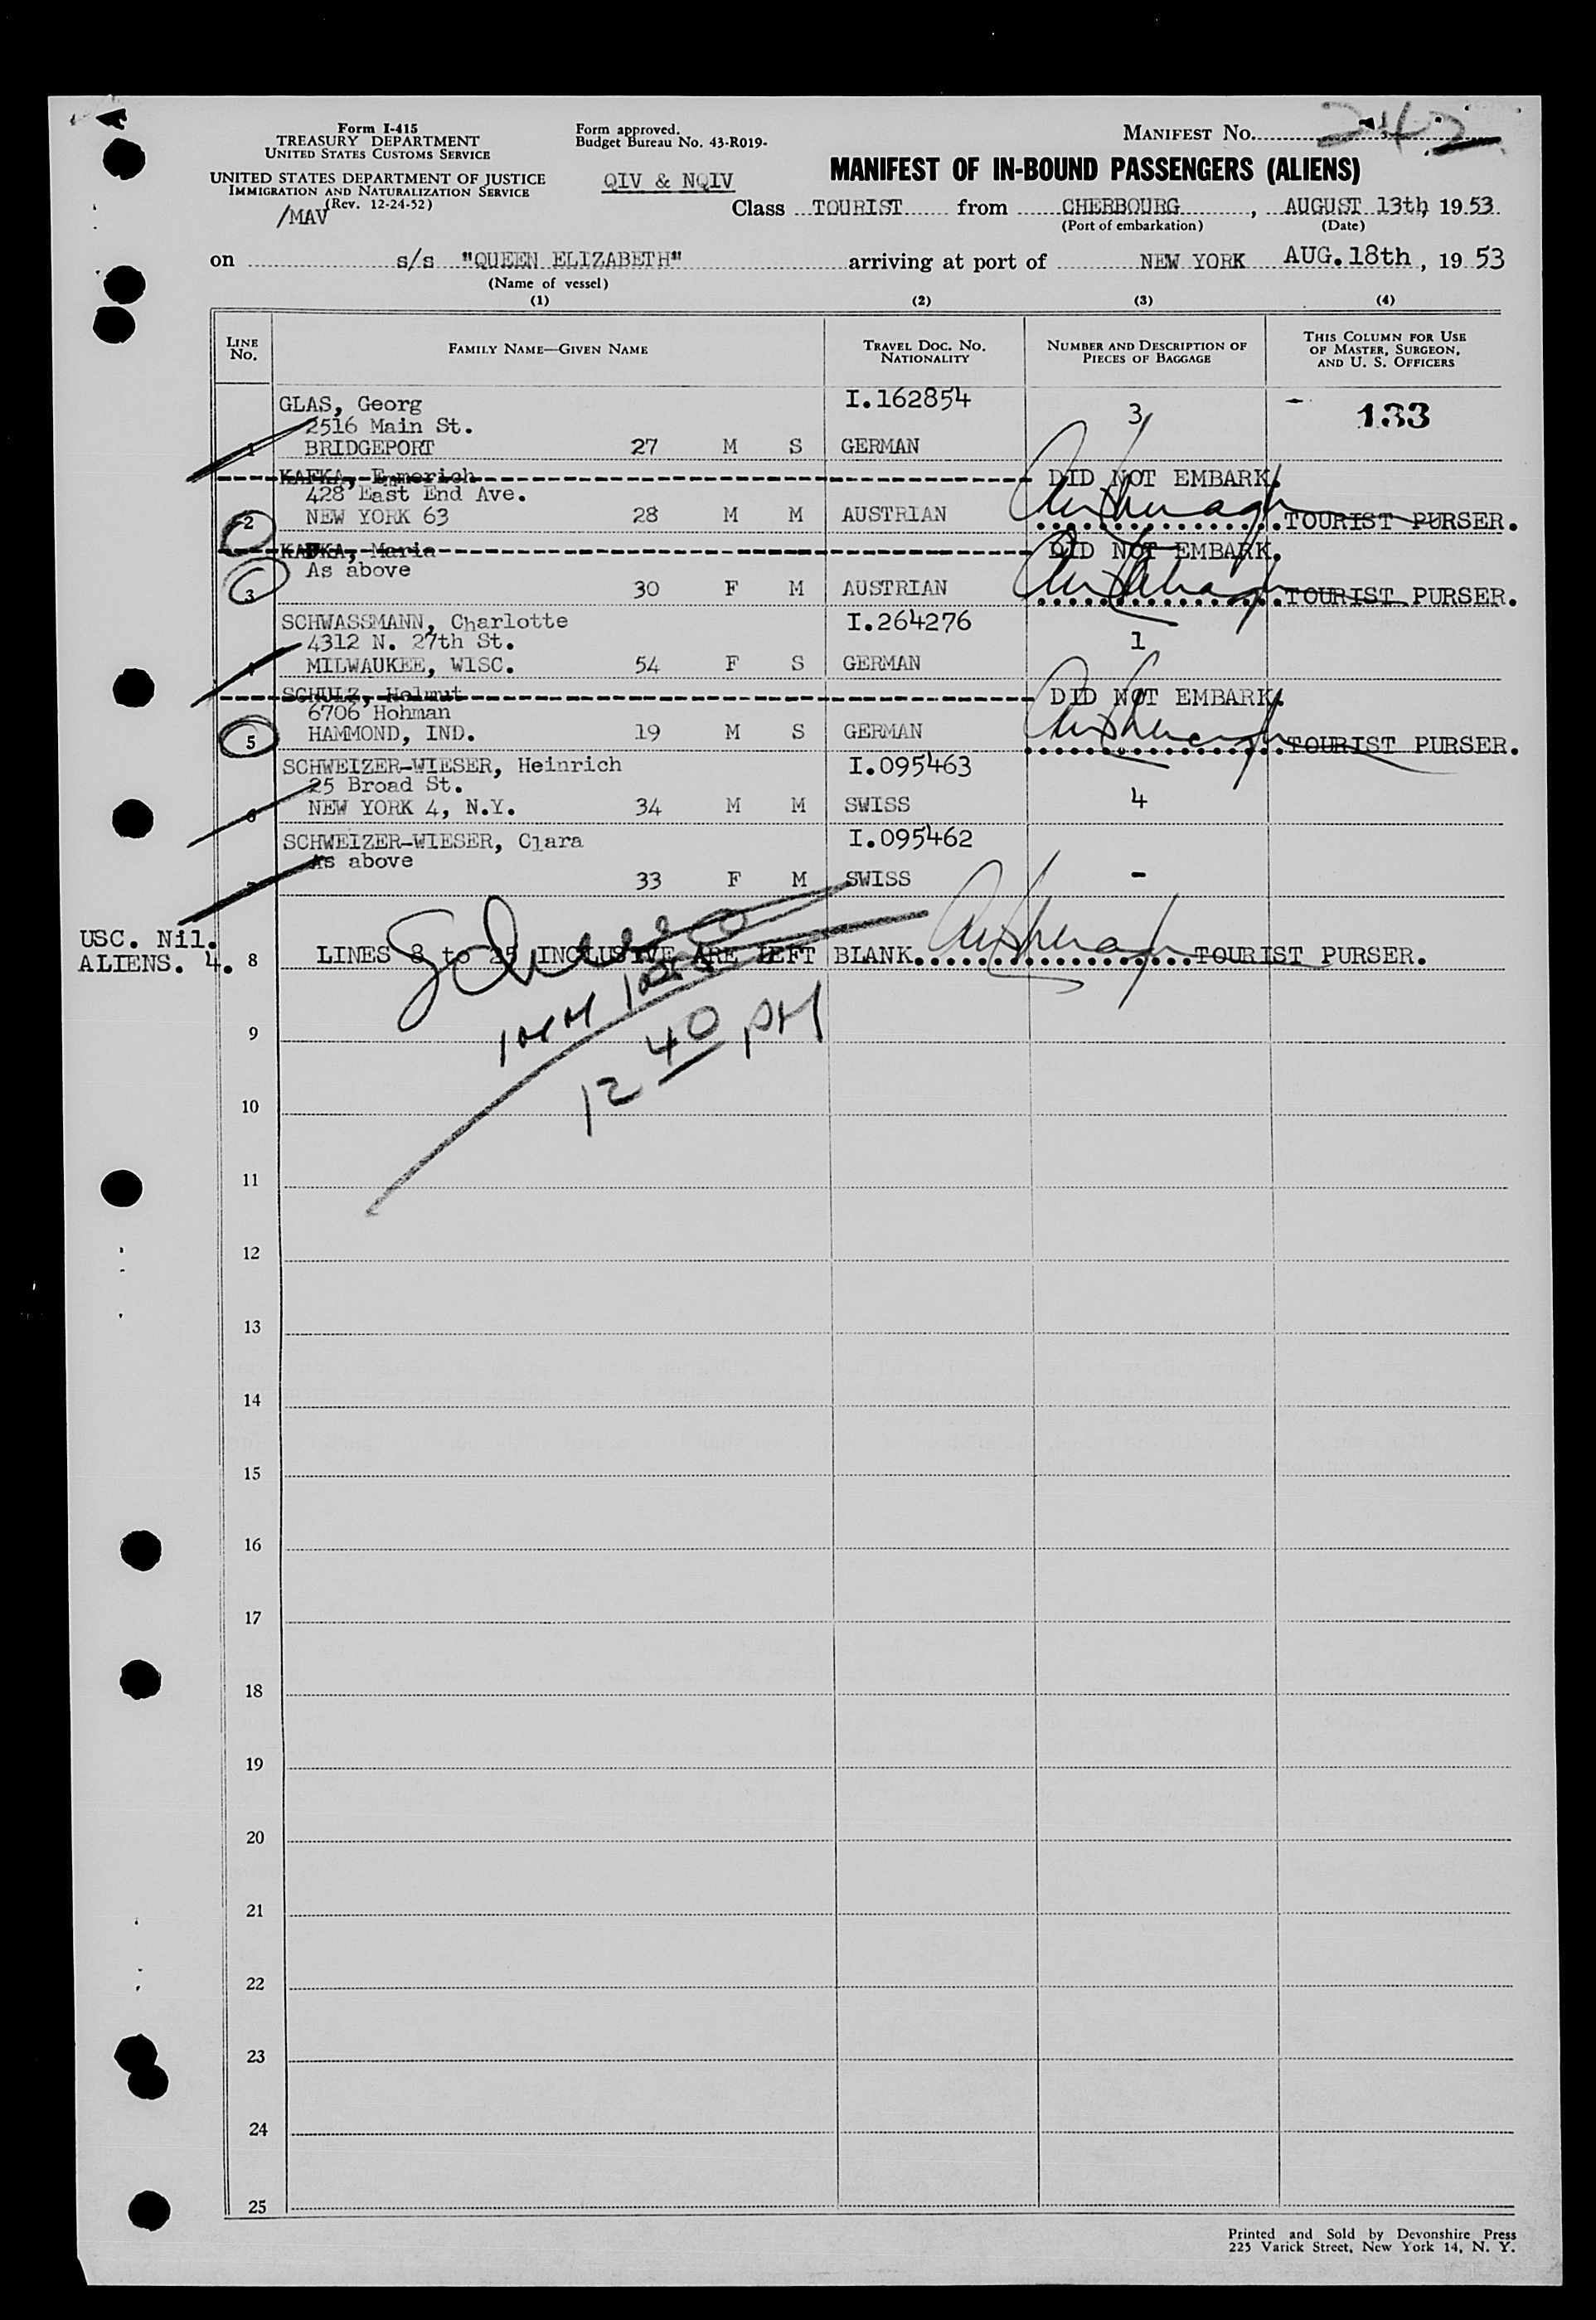 Form I-415
TREASURY DEPARTMENT
UNITED STATES CUSTOMS SERVICE
UNITED STATES DEPARTMENT OF JUSTICE
IMMIGRATION AND NATURALIZATION SERVICE
(Rev. 12-24-52)
/MAV
Form approved.
Budget Bureau No. 43-R019-
QIV & NQIV
MANIFEST No. 242
MANIFEST OF IN-BOUND PASSENGERS (ALIENS)
Class TOURIST from CHERBOURG, AUGUST 13th, 1953.
(Port of embarkation) (Date)
on s/s "QUEEN ELIZABETH" arriving at port of NEW YORK AUG.18th, 1953
(Name of vessel)
(1) (2) (3) (4)
LINE No. FAMILY NAME—GIVEN NAME TRAVEL DOC. NO. NATIONALITY NUMBER AND DESCRIPTION OF PIECES OF BAGGAGE THIS COLUMN FOR USE OF MASTER, SURGEON, AND U. S. OFFICERS
GLAS, Georg I.162854 3 133
2516 Main St.
1 BRIDGEPORT 27 M S GERMAN
KAFKA, Emmerich DID NOT EMBARK.
428 East End Ave.
2 NEW YORK 63 28 M M AUSTRIAN TOURIST PURSER.
KAFKA, Maria DID NOT EMBARK.
As above
3 30 F M AUSTRIAN TOURIST PURSER.
SCHWASSMANN, Charlotte I.264276
4312 N. 27th St. 1
4 MILWAUKEE, WISC. 54 F S GERMAN
SCHULZ, Helmut DID NOT EMBARK.
6706 Hohman
5 HAMMOND, IND. 19 M S GERMAN TOURIST PURSER.
SCHWEIZER-WIESER, Heinrich I.095463
25 Broad St.
6 NEW YORK 4, N.Y. 34 M M SWISS 4
SCHWEIZER-WIESER, Clara I.095462
As above
7 33 F M SWISS -
USC. Nil.
ALIENS. 4.
8 LINES 8 to 25 INCLUSIVE ARE LEFT BLANK. TOURIST PURSER.
12 40 PM
9
10
11
12
13
14
15
16
17
18
19
20
21
22
23
24
25
Printed and Sold by Devonshire Press
225 Varick Street, New York 14, N. Y.